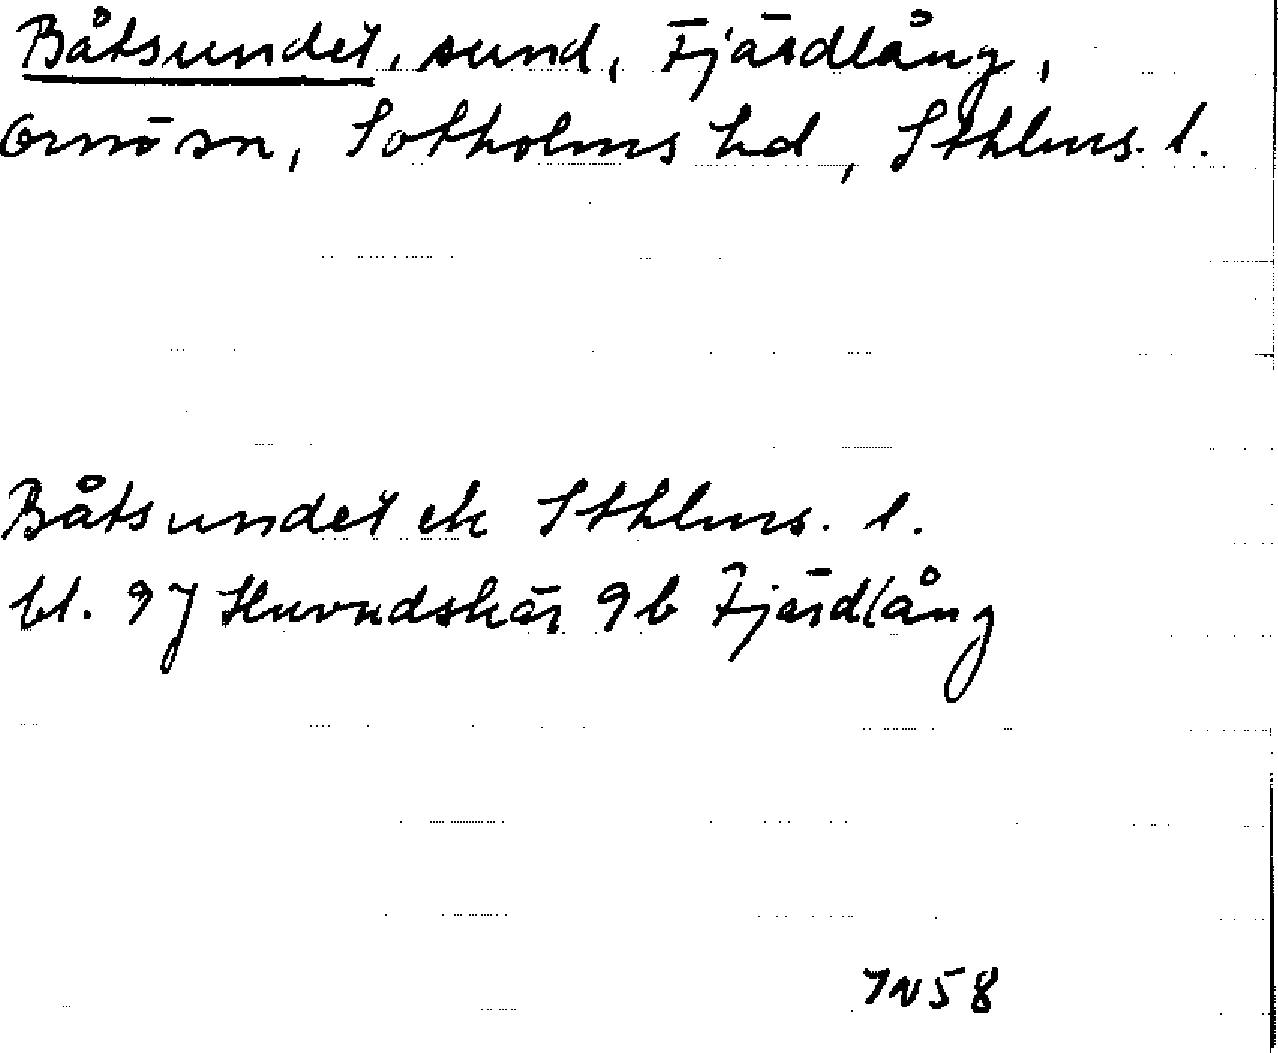 Båtsundet, sund, Fjärdlång,
Ornö sn, Sotholms hd, Sthlms. l.
Båtsundet ek Sthlms. l.
bl. 97 Huvudskär 9b Fjärdlång
IN58